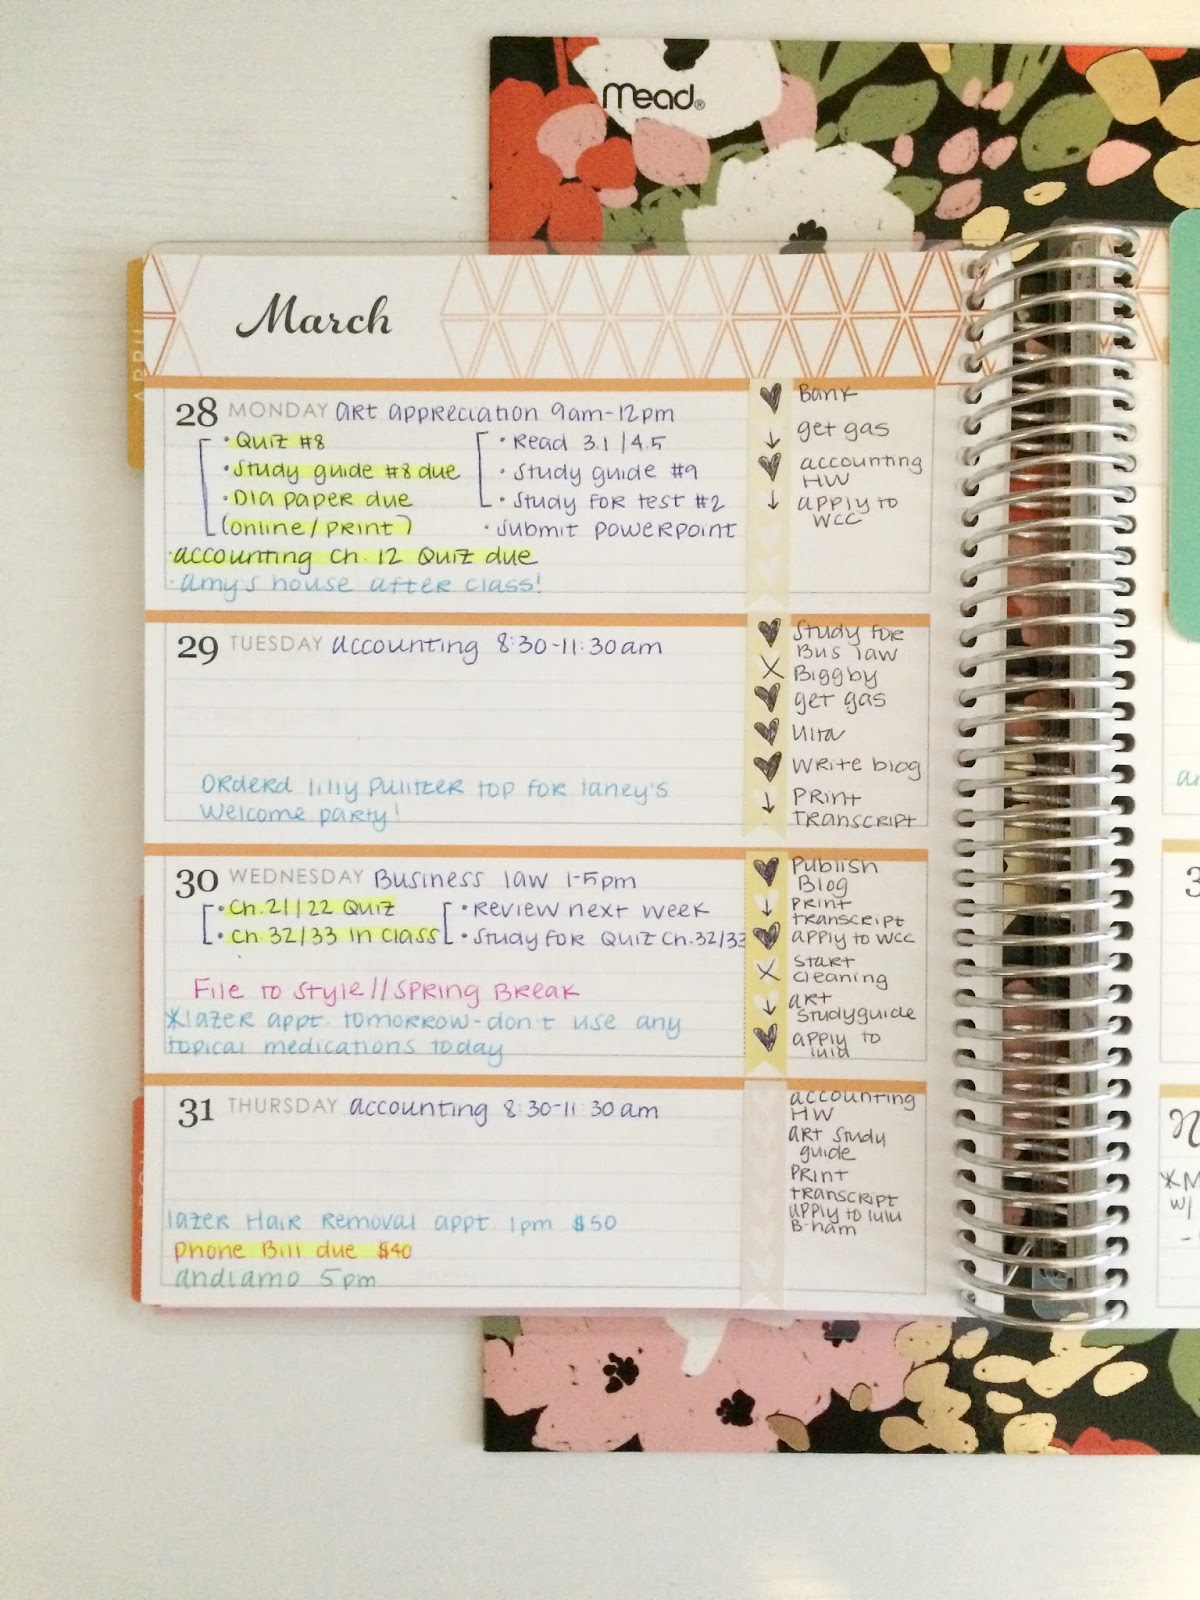 Mead®
APRIL
March
28 MONDAY Art Appreciation 9am-12pm
• Quiz #8
• Study guide #8 due
• DIA paper due
(online/print)
• Read 3.1/4.5
• Study guide #9
• Study for test #2
• Submit PowerPoint
• Accounting Ch. 12 Quiz due
• Amy's house after class!
Bank
get gas
accounting
HW
apply to
WCC
29 TUESDAY Accounting 8:30-11:30am
Orderd lilly pulitzer top for laney's
welcome party!
Study for
Bus law
Biggby
get gas
Ulta
write blog
Print
transcript
30 WEDNESDAY Business law 1-5pm
• Ch. 21/22 Quiz
• Ch. 32/33 in class
• Review next week
• Study for Quiz Ch. 32/33
File to Style//Spring Break
*lazer appt. tomorrow-don't use any
topical medications today
Publish
Blog
Print
transcript
apply to WCC
Start
cleaning
Art
Studyguide
apply to
lulu
31 THURSDAY Accounting 8:30-11:30am
lazer Hair Removal appt 1pm $50
Phone Bill due $40
andiamo 5pm
accounting
HW
art study
guide
Print
transcript
apply to lulu
B-ham
*M
w/